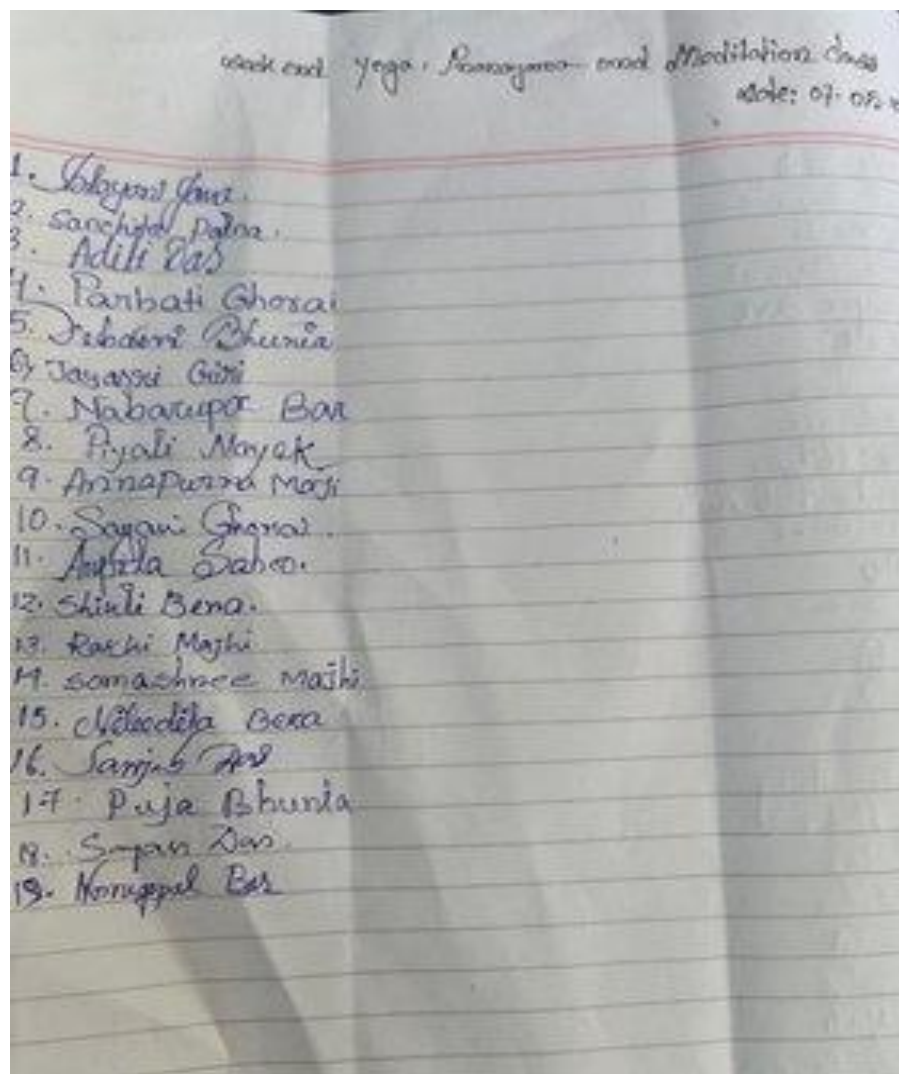 Week end yoga, Pranayama and Meditation class
Date: 07-05-
1. Jana.
2. Sanchita Patra.
3. Aditi Das
4. Parbati Ghorai
5. Bhunia
6, Jayassri Giri
7. Nabarupa Bar
8. Piyali Nayak
9. Annapurna Maji
10. Sayani Ghorai.
11. Sahoo.
12. Shiuli Bera.
13. Rakhi Majhi
14. Somashree Majhi
15. Nibedita Bera
16. Sanjib Das
17. Puja Bhunia
18. Sayan Das
19. Bar